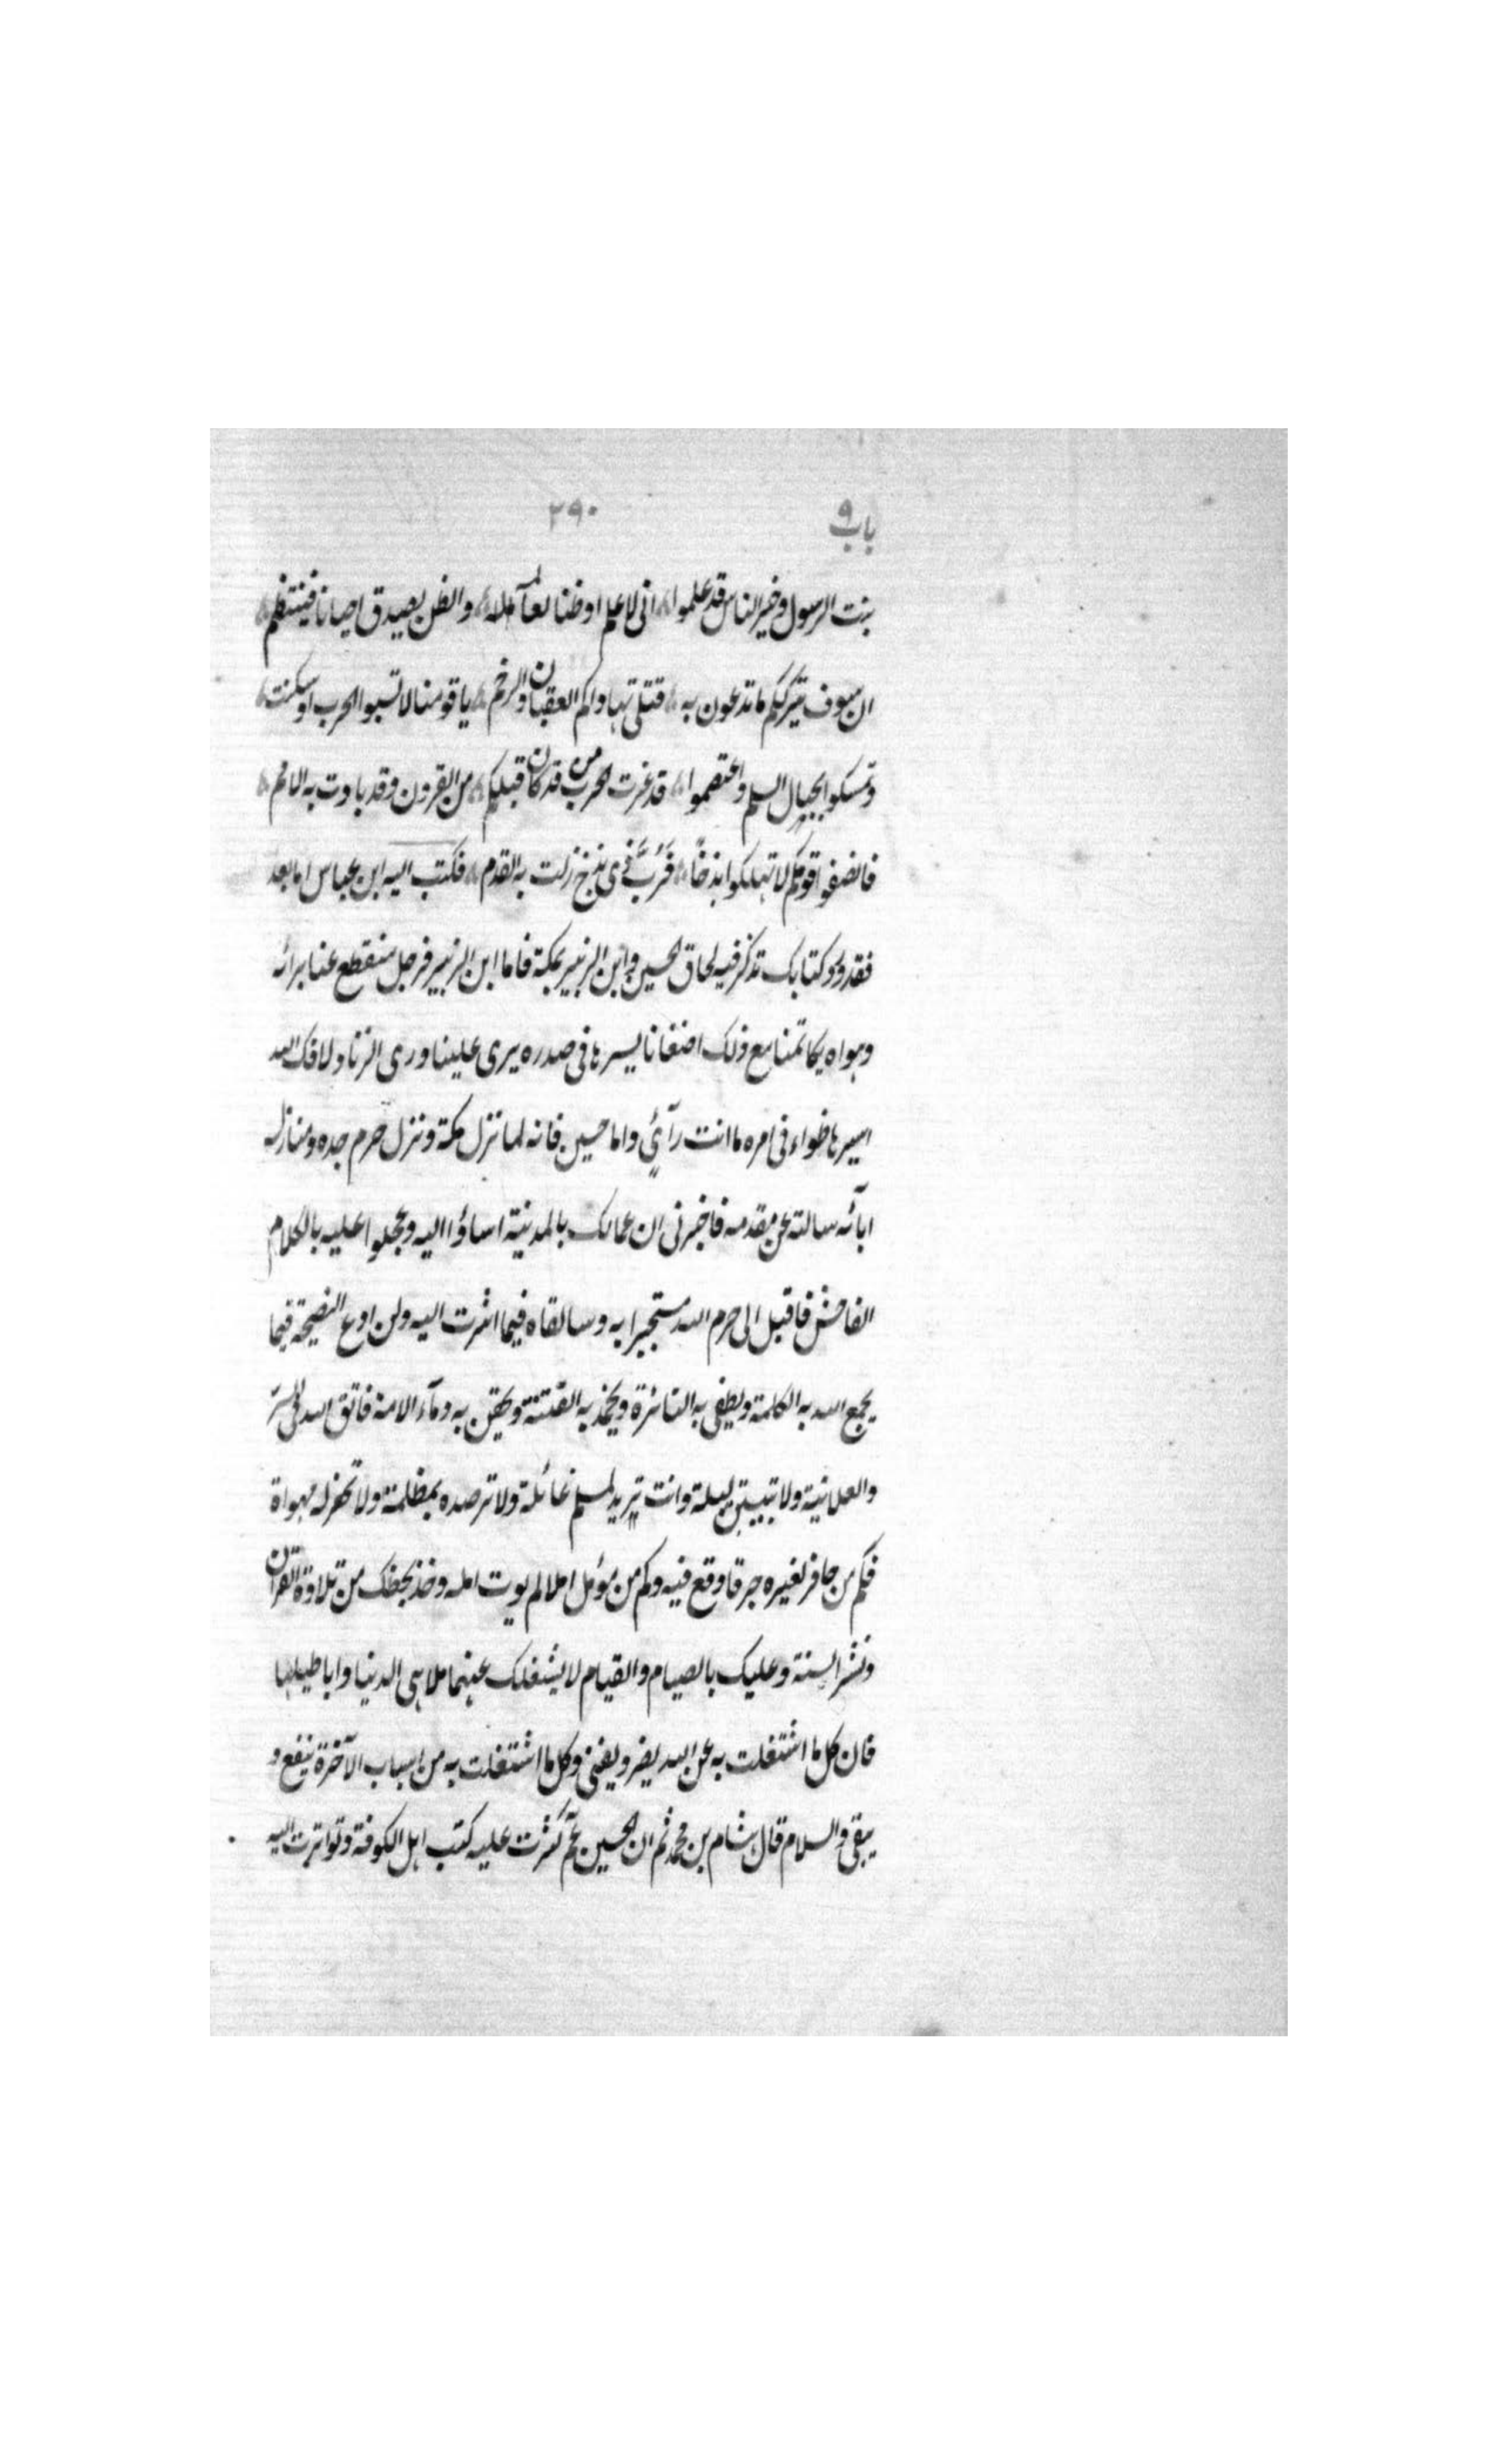 باب ٩ ٢٩٠
بنت الرسول وخير الناس قد علموا؛ انى لاعلم اوظنا لعالمه؛ والظن يصدق احيانا فينتظم؛
ان سوف يترككم ما تدعون به؛ قتلى تهاداكم العقبان والرخم؛ يا قومنا لا تشبوا الحرب اذ سكنت؛
وتمسكوا بحبال السلم واعتصموا؛ قد غرت الحرب من قد كان قبلكم؛ من القرون وقد بادت به الامم؛
فانصفوا قومكم لا تهلكوا بذخًا؛ فَرُبَّ ذى بذخ زلت به القدم؛ فكتب اليه ابن عباس اما بعد
فقد ورد كتابك تذكر فيه لحاق الحسين وابن الزبير بمكة فاما ابن الزبير فرجل منقطع عنا برائه
وهواه يكاتمنا مع ذلك اضغانا يسرها فى صدره يورى علينا ورى الزناد لا فك الله
اسيرها فراء فى امره ما انت رآئي واما حسين فانه لما نزل مكة ونزل حرم جده ومنازل
ابآئه سالته عن مقدمه فاخبرنى ان عمالك بالمدينة اساؤا اليه وعجلوا عليه بالكلام
الفاحش فاقبل الى حرم الله مستجيرا به وسالقاه فيما اشرت اليه ولن ادع النصيحة فيما
يجمع الله به الكلمة ويطفى به النائرة ويخمد به الفتنة ويحقن به دمآء الامة فاتق الله فى السر
والعلانية ولا تبيتن ليلة وانت تريد لمسلم غائلة ولا ترصده بمظلمة ولا تحفر له مهواة
فكم من حافر لغيره حفرا وقع فيه وكم من مؤمل املا لم يوت امله وخذ بحظك من تلاوة القران
ونشر السنة وعليك بالصيام والقيام لا يشغلك عنهما ملاهى الدنيا واباطيلها
فان كل ما اشتغلت به عن الله يضر ويفنى وكل ما اشتغلت به من اسباب الآخرة ينفع و
يبقى والسلام قال هشام بن محمد ثم ان الحسين عم كثرت عليه كتب اهل الكوفة وتواترت اليه